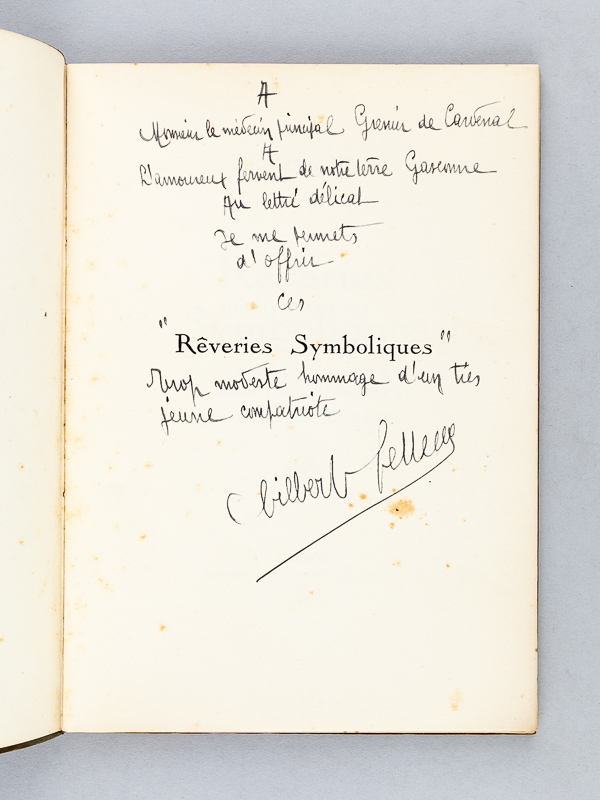 A
Monsieur le médecin principal Grenier de Cardenal
A
L'amoureux fervent de notre terre Gasconne
Au lettré délicat
Je me permets
d'offrir
ces
"Rêveries Symboliques"
trop modeste hommage d'un très
jeune compatriote
Gilbert